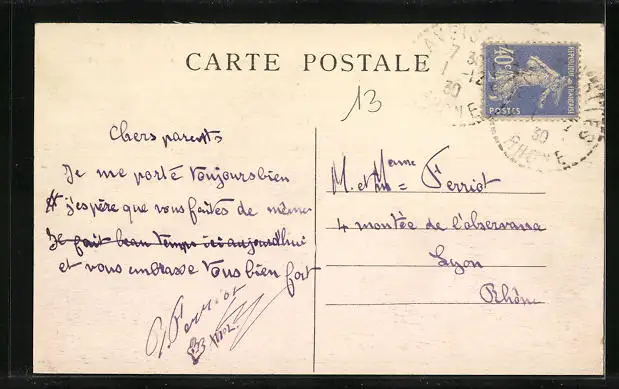 CARTE POSTALE
40c
REPUBLIQUE FRANÇAISE
POSTES
7 30
1 -12
30
30
RHONE
13
Chers parents
Je me porte toujours bien
et j'espère que vous faites de même
Il fait beau temps ici aujourd'hui
et vous embrasse tous bien fort
Ferriot
M. et Mme = Ferriot
4 montée de l'observance
Lyon
Rhône